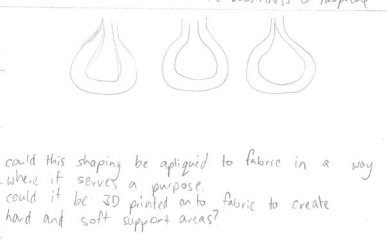 could this shaping be apliquéd to fabric in a way
where it serves a purpose.
could it be 3D printed onto fabric to create
hard and soft support areas?